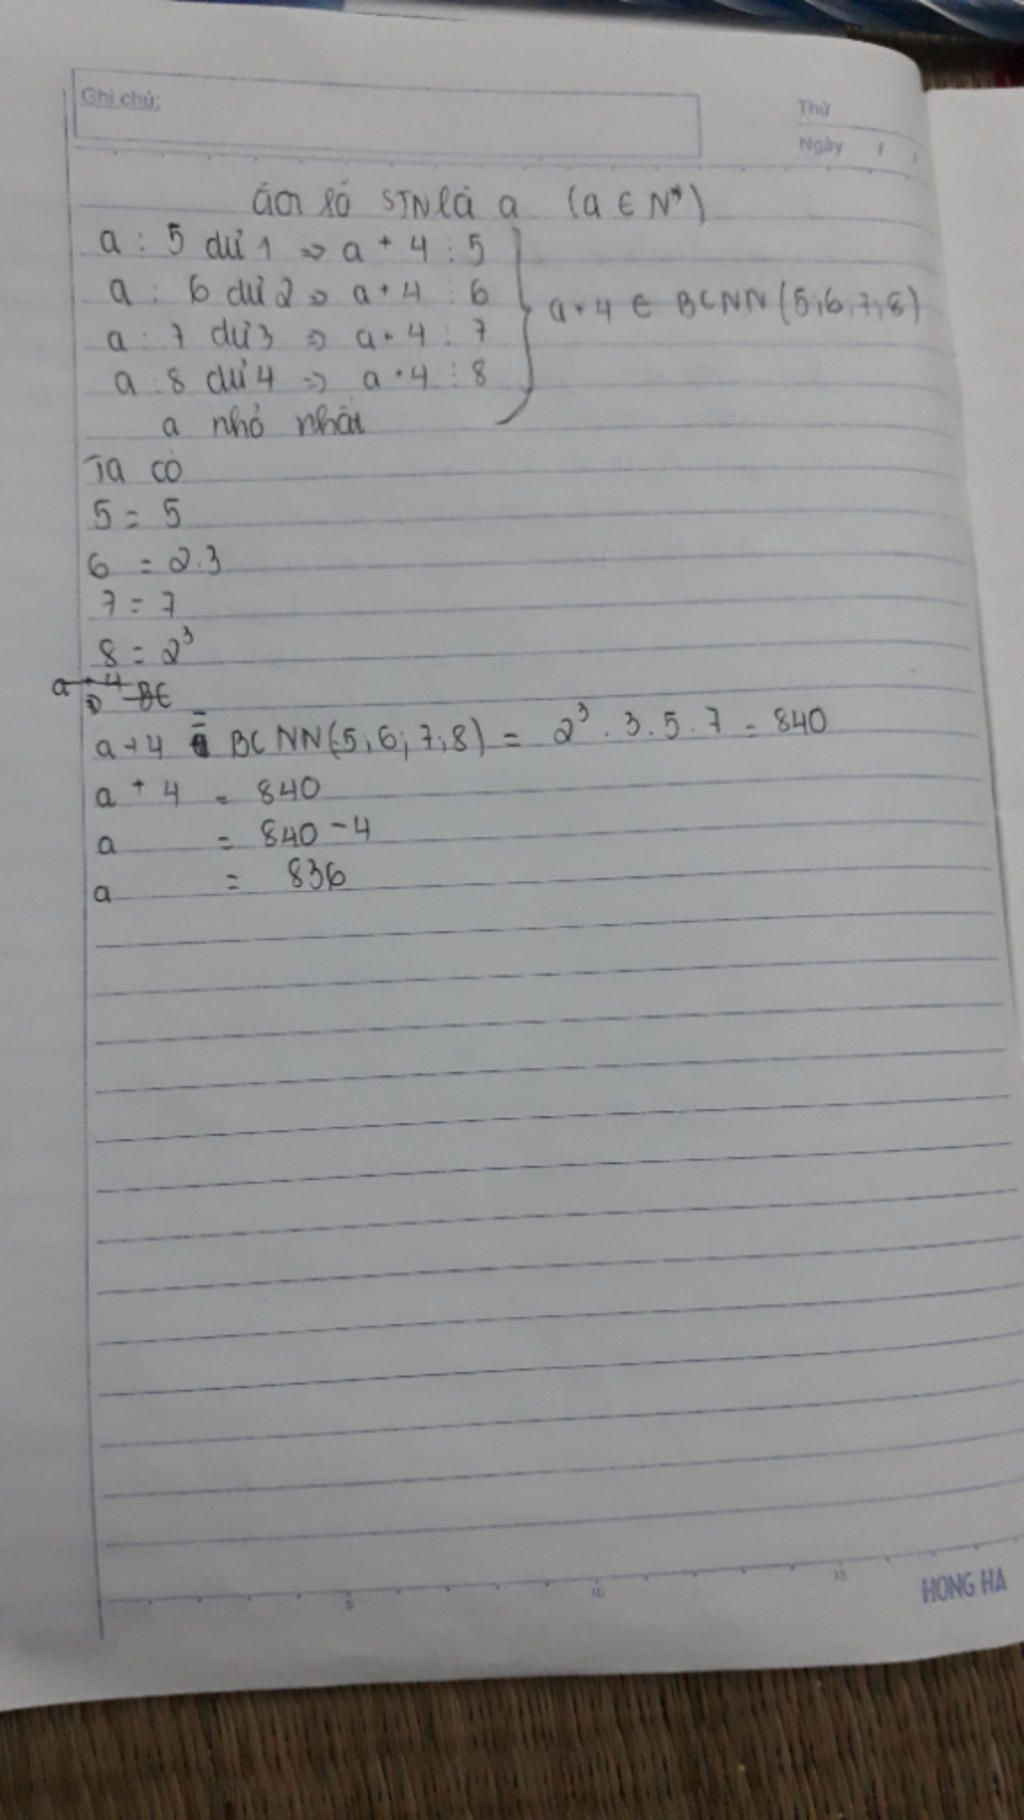 Ghi chú:
Thứ
Ngày / /
số STN là a (a ∈ N*)
a : 5 dư 1 => a + 4 : 5
a : 6 dư 2 => a + 4 : 6
a : 7 dư 3 => a + 4 : 7
a : 8 dư 4 => a + 4 : 8
a nhỏ nhất
a + 4 ∈ BCNN (5,6,7,8)
Ta có
5 = 5
6 = 2.3
7 = 7
8 = 2³
a + 4 BC
a + 4 = BCNN(5,6,7,8) = 2³ . 3 . 5 . 7 = 840
a + 4 = 840
a = 840 - 4
a = 836
5 10 15
HONG HA